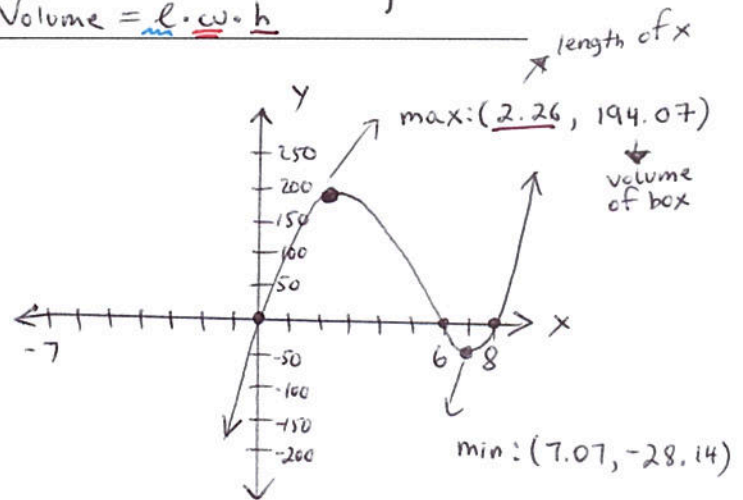 Volume = l · w · h
length of x
Y
max: (2.26, 194.07)
volume
of box
250
200
150
100
50
X
-7
6
8
-50
-100
-150
-200
min: (7.07, -28.14)